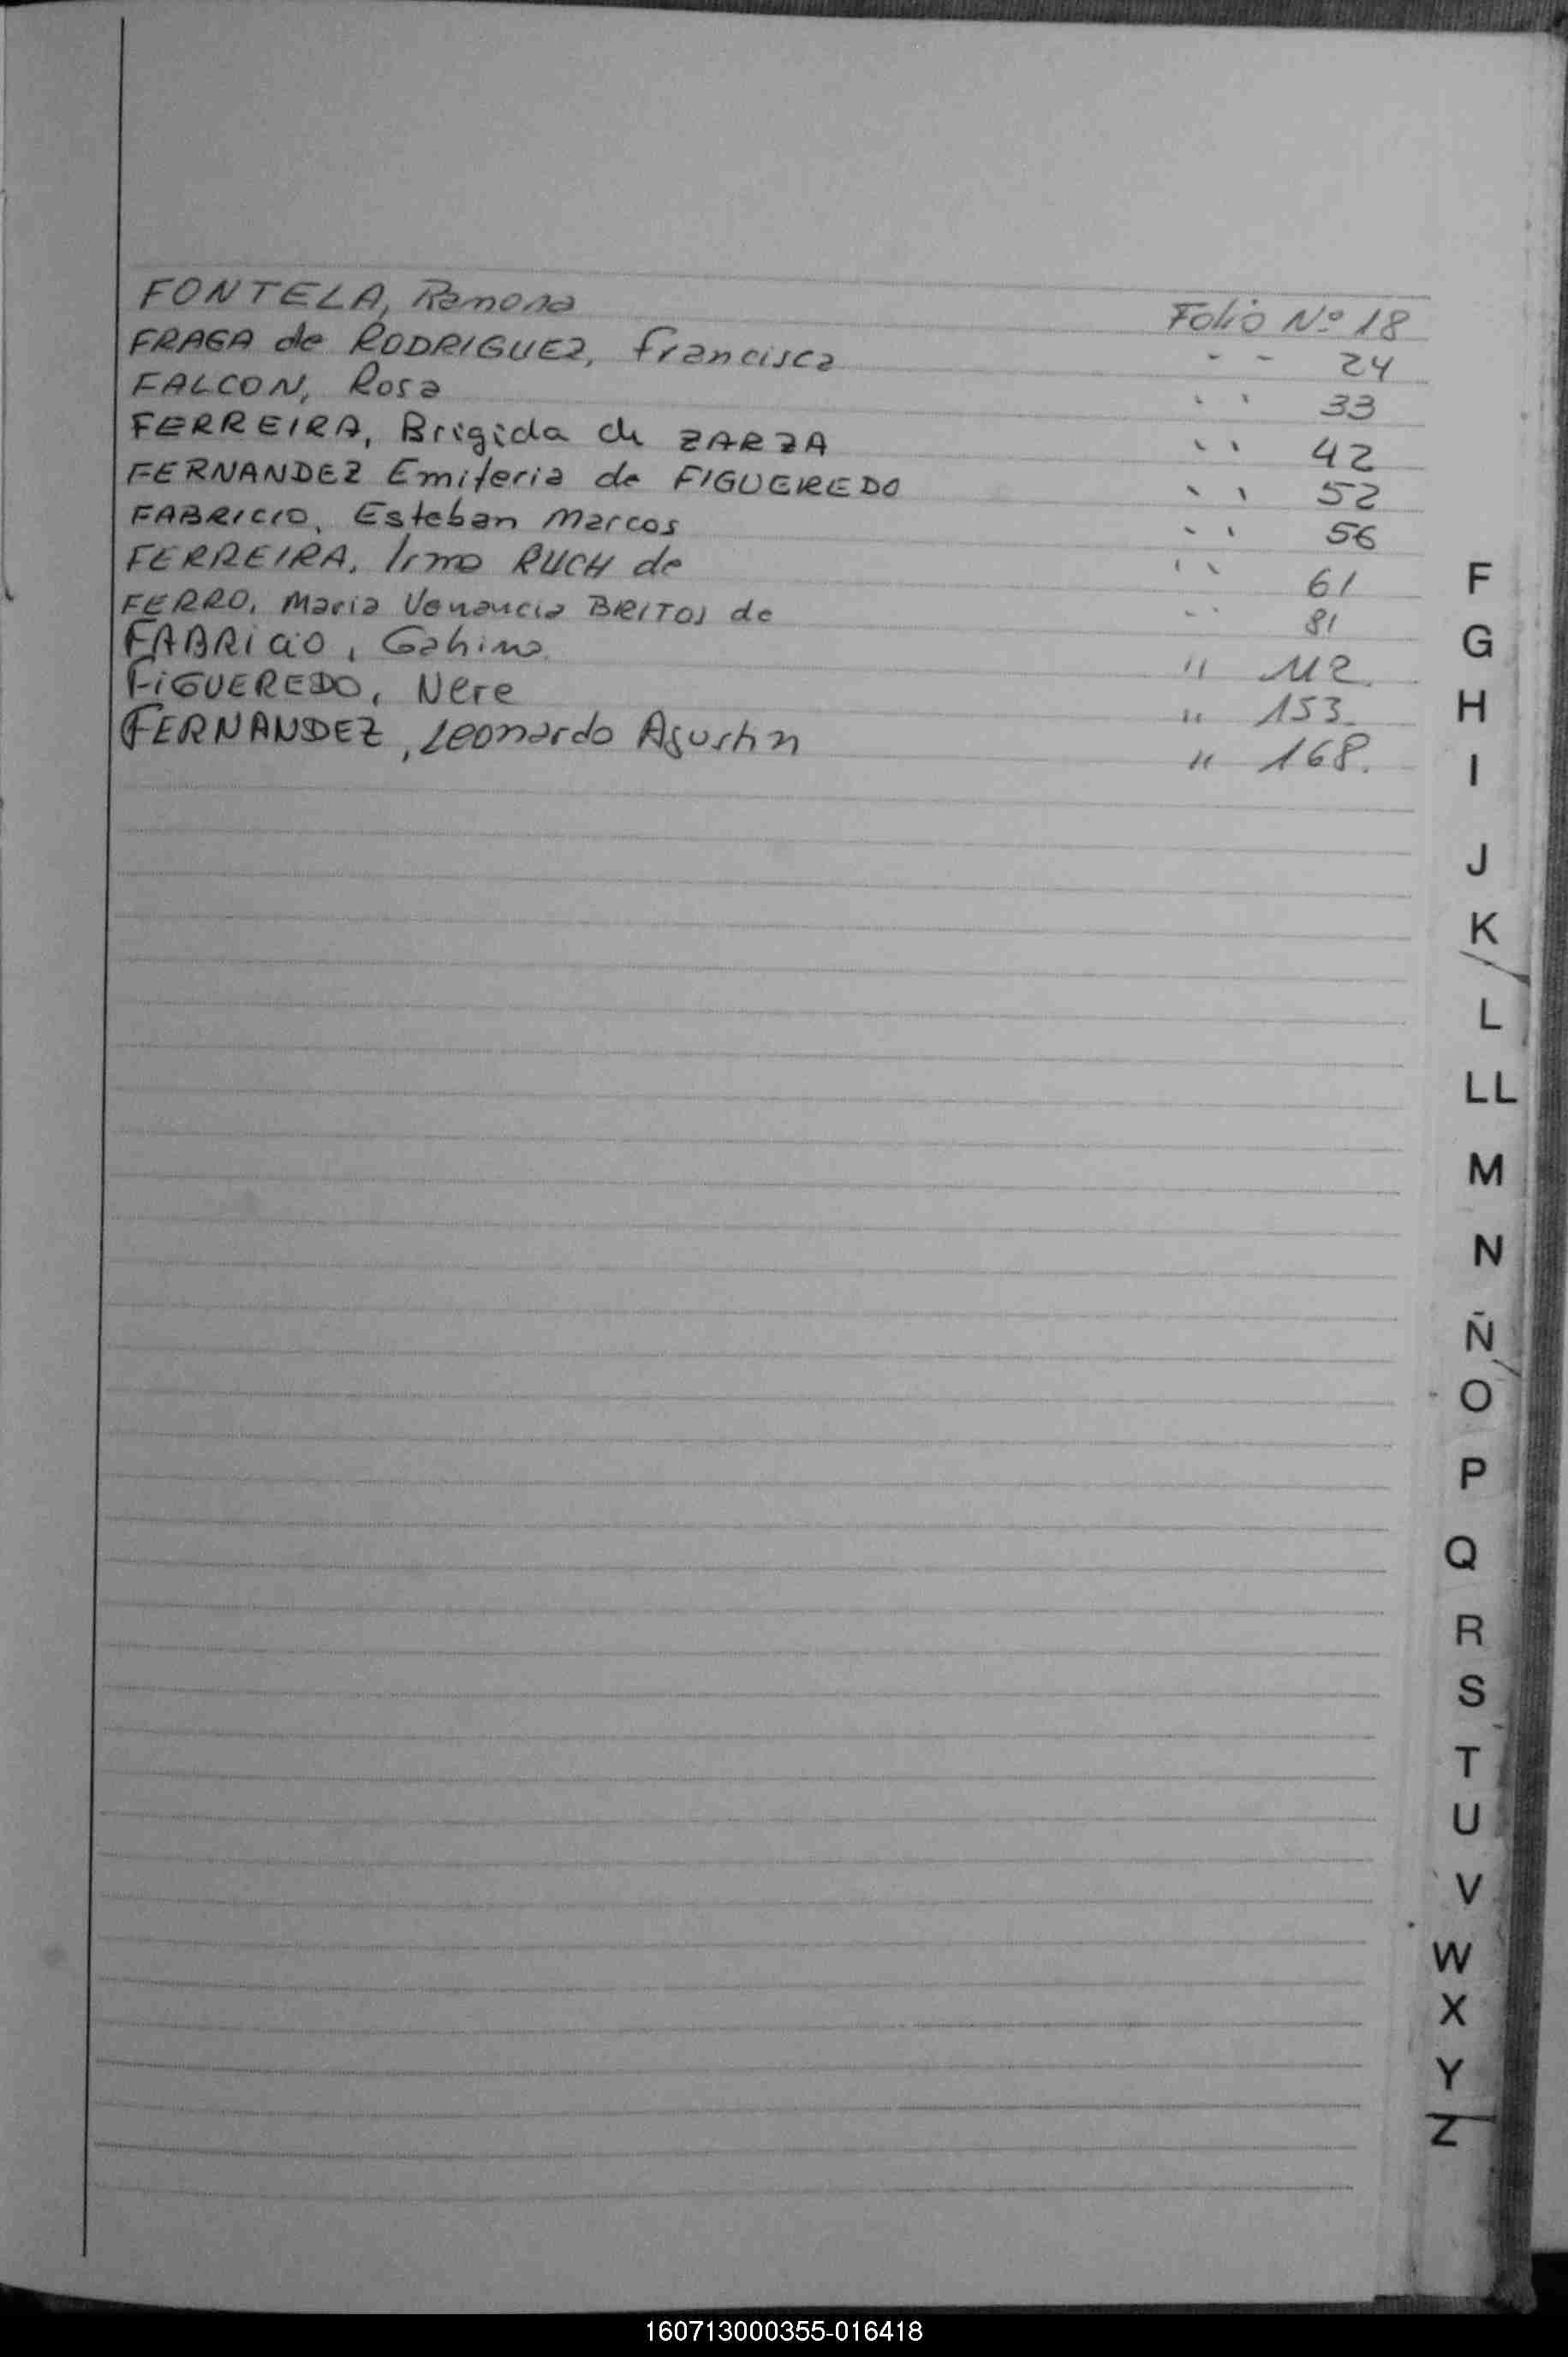 FONTELA, Ramona Folio Nº 18
FRAGA de RODRIGUEZ, Francisca - - 24
FALCON, Rosa " 33
FERREIRA, Brigida de ZARZA " 42
FERNANDEZ Emiteria de FIGUEREDO " 52
FABRICIO, Esteban Marcos " 56
FERREIRA, Irma RUCH de " 61
FERRO, Maria Venancia BRITOS de " 81
FABRICIO, Gabina " 112.
FIGUEREDO, Nere " 153
FERNANDEZ, Leonardo Agustin " 168.
F
G
H
I
J
K
L
LL
M
N
Ñ
O
P
Q
R
S
T
U
V
W
X
Y
Z
160713000355-016418